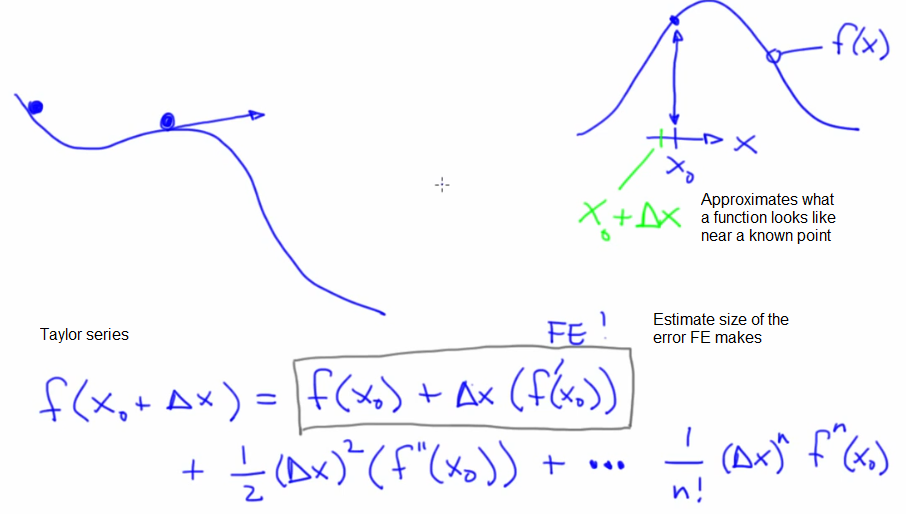 f(x)
x
x₀
x₀ + Δx
Approximates what
a function looks like
near a known point
Taylor series
FE !
Estimate size of the
error FE makes
f(x₀ + Δx) = f(x₀) + Δx (f'(x₀))
+ 1/2 (Δx)² (f"(x₀)) + ••• 1/n! (Δx)ⁿ fⁿ(x₀)